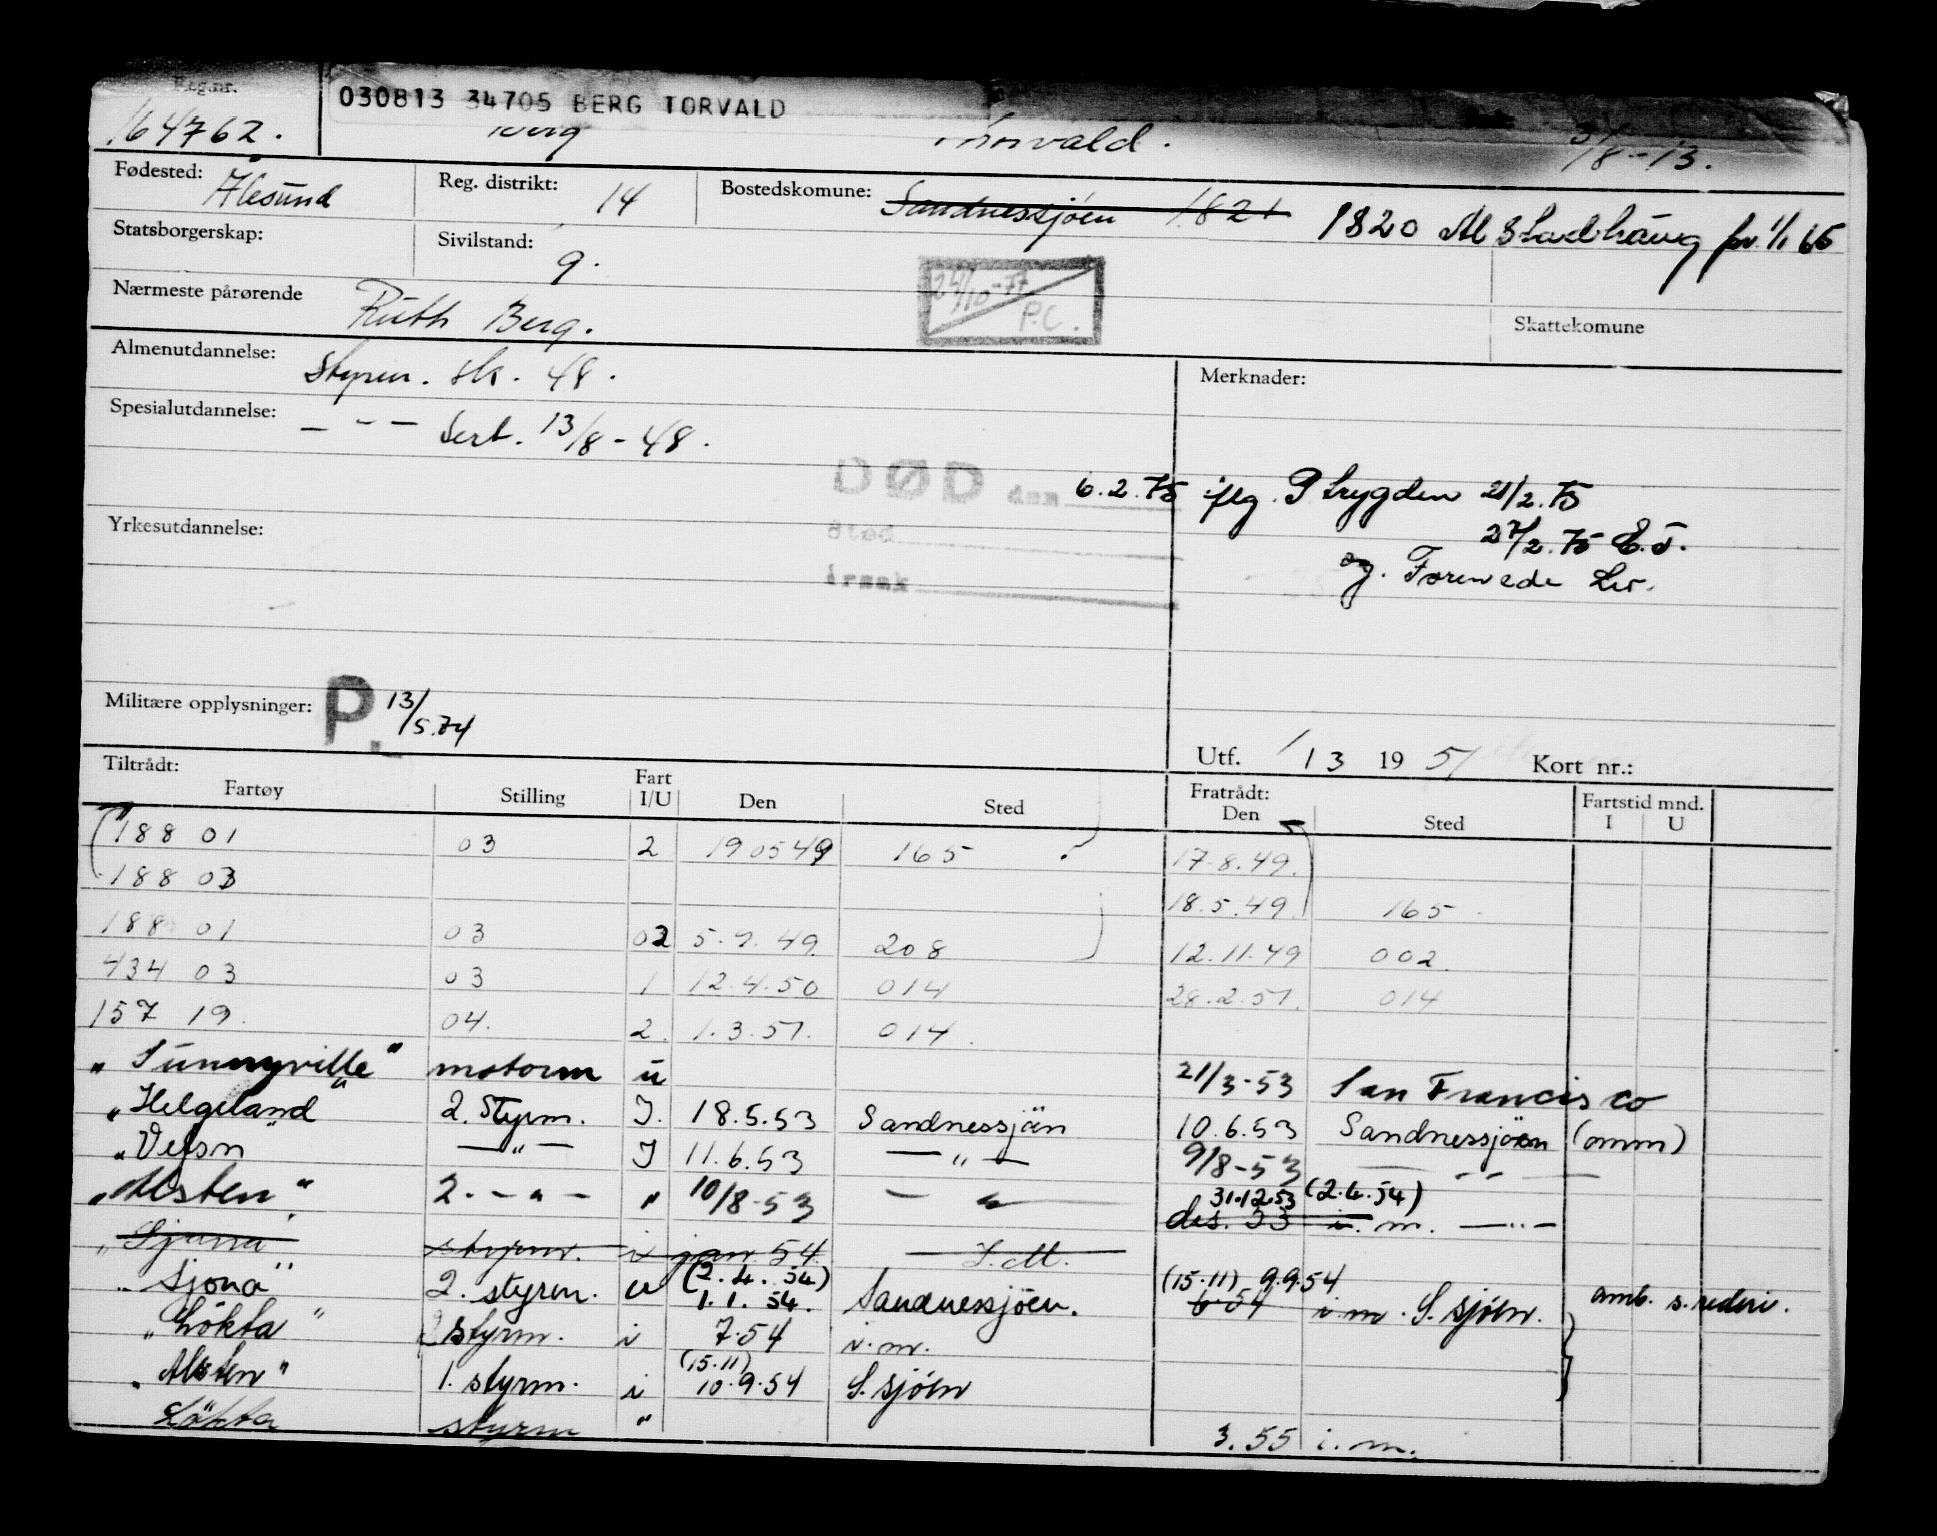 Reg.nr.
030813 34705 BERG TORVALD
164762. Berg Thorvald. 3/8-13.
Fødested: Ålesund Reg. distrikt: 14 Bostedskomune: Sandnessjöen 1821 1820 Alstadhaug fr 1/1 65
Statsborgerskap: Sivilstand: g.
24/10-77 P.C.
Nærmeste pårørende Ruth Berg.
Skattekomune
Almenutdannelse: Styrm. sk. 48.
Merknader:
Spesialutdannelse: — " — Sert. 13/8-48.
DØD den 6.2.75 iflg. P trygden 21/2.75
Sted 27/2.75
Yrkesutdannelse:
og.
årsak
Militære opplysninger: P. 13/5.74
Utf. 1/3 1951 Kort nr.:
Tiltrådt: Fratrådt: Fartstid mnd.
Fartøy Stilling Fart I/U Den Sted Den Sted I U
188 01 03 2 190549 165 17.8.49.
188 03 18.5.49. 165
188 01 03 02 5.7.49. 208 12.11.49 002.
434 03 03 1 12.4.50 014 28.2.51. 014
157 19. 04. 2. 1.3.51. 014.
"Sunnyville" motorm u 21/3-53 San Francisco
"Helgeland" 2. Styrm. I. 18.5.53 Sandnessjön 10.6.53 Sandnessjöen (omm)
"Vefsn" — " — I 11.6.53 — " — 9/8-53 — " —
"Alsten" 2. — " — " 10/8-53 — " — 31.12.53 (2.4.54)
des. 53 i.m. — " —
"Sjona" styrm. i jan 54 I.M.
"Sjona" 2. styrm. u (2.4.54) 1.1.54. Sandnessjöen. (15.11) 9.9.54 6-54 i.m. S.sjöen. omb. s. rederi.
"Lökta" styrm. i 7.54 i.m.
"Alsten" 1. styrm. i (15.11) 10.9.54 S.sjöen
Lökta styrm " 3.55 i.m.